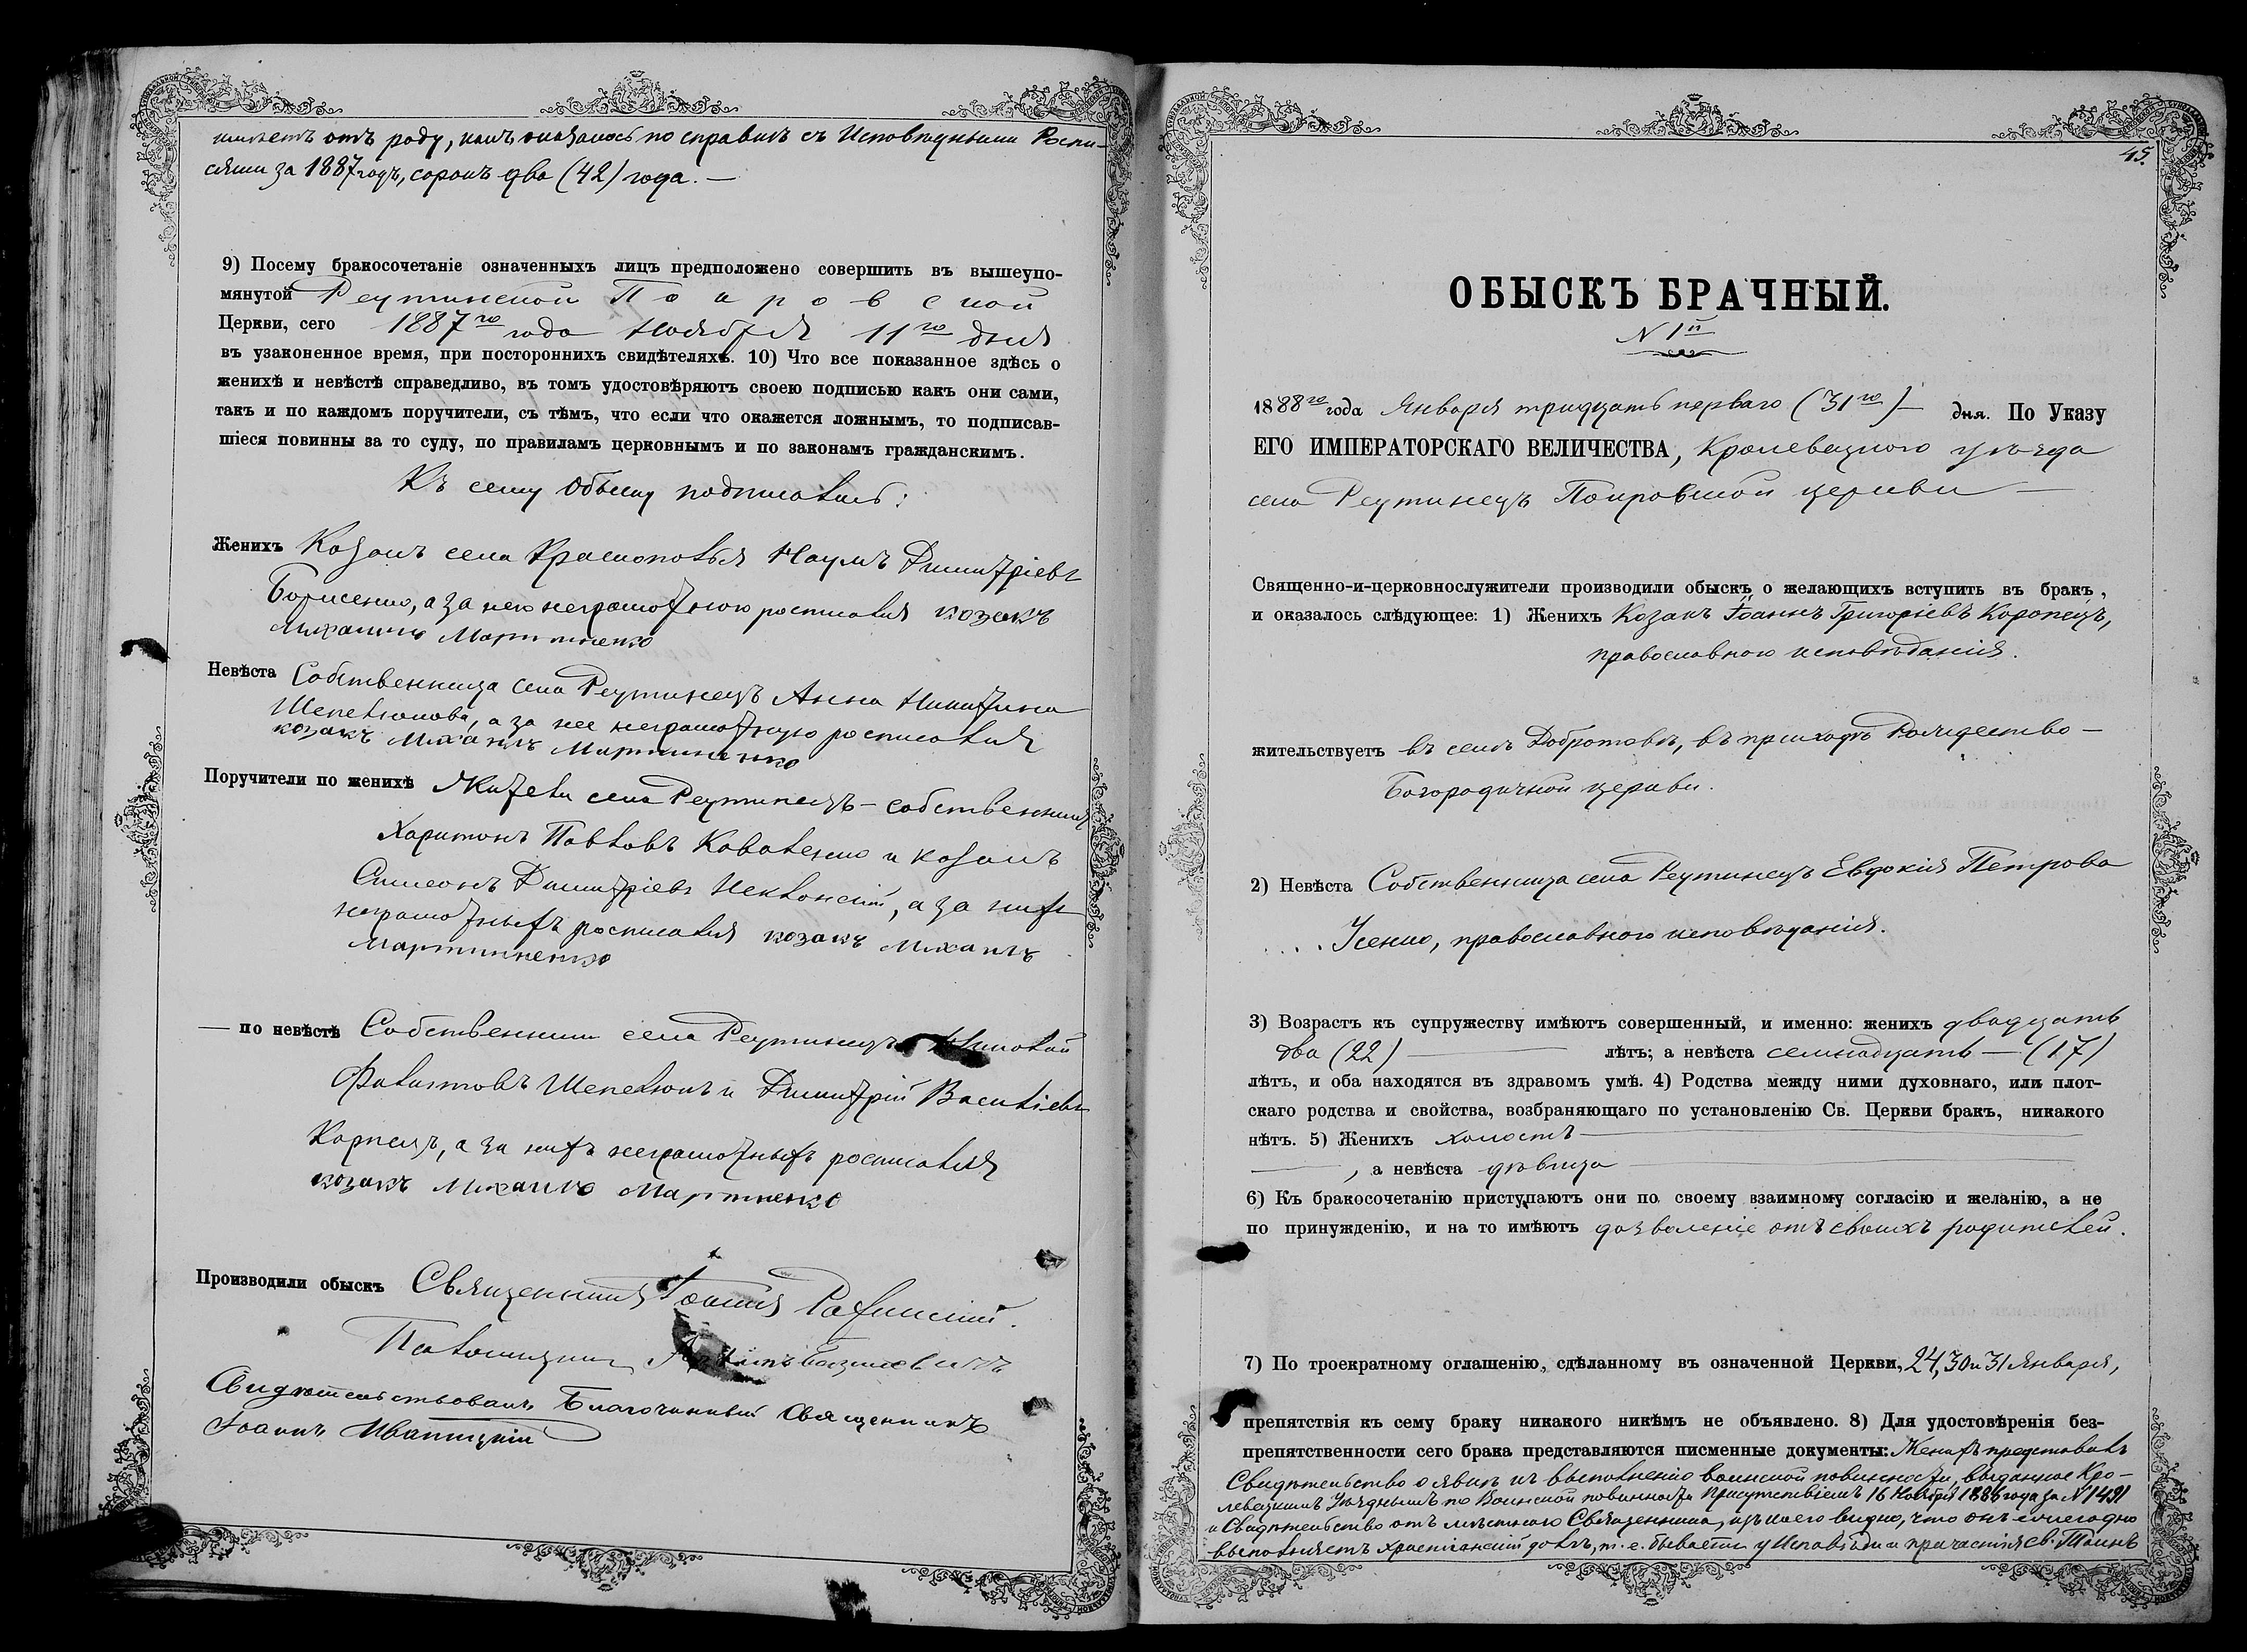 имѣетъ отъ роду, какъ оказалось по справкѣ съ Исповѣдными Роспи-
сями за 1887 годъ, сорокъ два (42) года. —
9) Посему бракосочетаніе означенныхъ лицъ предположено совершить въ вышеупо-
мянутой Реутинской Покровской
Церкви, сего 1887го года Ноября 11го дня
въ узаконенное время, при постороннихъ свидѣтеляхъ. 10) Что все показанное здѣсь о
женихѣ и невѣстѣ справедливо, въ томъ удостовѣряютъ своею подписью какъ они сами,
такъ и по каждомъ поручители, съ тѣмъ, что если что окажется ложнымъ, то подписав-
шіеся повинны за то суду, по правиламъ церковнымъ и по законамъ гражданскимъ.
Къ сему Обыску подписались:
Женихъ Козакъ села Краснополья Наумъ Димитріевъ
Борисенко, а за него неграмотного росписался козакъ
Михаилъ Мартиненко
Невѣста Собственница села Реутинецъ Анна Никитина
Шепелюкова, а за нее неграмотную росписался
козакъ Михаилъ Мартиненко
Поручители по женихѣ Жители села Реутинецъ – собственникъ
Харитонъ Павловъ Коваленко и козакъ
Симеонъ Димитріевъ, а за нихъ
неграмотныхъ росписался козакъ Михаилъ
Мартиненко
— по невѣстѣ Собственники села Реутинецъ Николай
Филиповъ Шепелюкъ и Димитрій Васильевъ
Карпецъ, а за нихъ неграмотныхъ росписался
козакъ Михаилъ Мартиненко
Производили обыскъ Священникъ Іоаннъ
Псаломщикъ
Свидѣтельствовалъ Благочинный Священникъ
Іоаннъ Иваницкій
45.
ОБЫСКЪ БРАЧНЫЙ.
N 1й
1888го года Января тридцать перваго (31го) — дня. По Указу
ЕГО ИМПЕРАТОРСКАГО ВЕЛИЧЕСТВА, Кролевецкого уѣзда
села Реутинецъ Покровской церкви —
Священно-и-церковнослужители производили обыскъ о желающихъ вступить въ бракъ,
и оказалось слѣдующее: 1) Женихъ Козакъ Іоаннъ Григоріевъ Коропецъ,
православного исповѣданія.
жительствуетъ въ селѣ Добротовѣ, въ приходѣ Рождество —
Богородичной церкви.
2) Невѣста Собственница села Реутинецъ Евдокія Петрова
Усенко, православного исповѣданія.
3) Возрастъ къ супружеству имѣютъ совершенный, и именно: женихъ двадцать
два (22) — лѣтъ; а невѣста семнадцать — (17)
лѣтъ, и оба находятся въ здравомъ умѣ. 4) Родства между ними духовнаго, или плот-
скаго родства и свойства, возбраняющаго по установленію Св. Церкви бракъ, никакого
нѣтъ. 5) Женихъ холостъ —
— , а невѣста дѣвица —
6) Къ бракосочетанію приступаютъ они по своему взаимному согласію и желанію, а не
по принужденію, и на то имѣютъ дозволеніе отъ своихъ родителей.
7) По троекратному оглашенію, сдѣланному въ означенной Церкви, 24, 30 и 31 Января,
препятствія къ сему браку никакого никѣмъ не объявлено. 8) Для удостовѣренія без-
препятственности сего брака представляются писменные документы: Женихъ представилъ
Свидѣтельство о явкѣ къ выполненію воинской повинности, выданное Кро-
левецкимъ Уѣзднымъ по Воинской повинности Присутствіемъ 16 Ноября 1886 года за N 1491
и Свидѣтельство отъ мѣстного Священника, изъ коего видно, что онъ ежегодно
выполняетъ христіанскій долгъ, т. е. бываетъ у Исповѣди и причастія Св. Таинъ